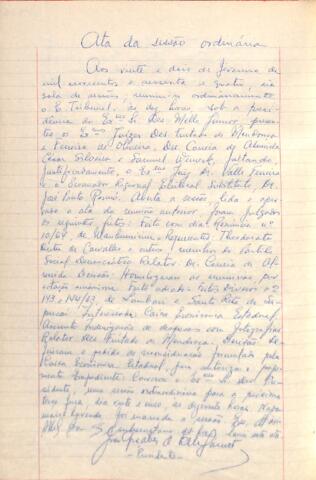 Ata da sessão ordinária
Aos vinte e dois de fevereiro de
mil novecentos e sessenta e quatro, na
sala de sessões, reuniu-se ordinariamente
o E. Tribunal, às dez horas, sob a presi-
dência do Exmo Sr. Des. Mello Junior, presen-
tes os Exmos Juízes Des. Furtado de Mendonça
e Ferreira de Oliveira, Drs. Correia de Almeida
César Silveira e Samuel Werneck, faltando,
justificadamente, o Exmo Juiz Dr. Valle Ferreira
e o Procurador Regional Eleitoral Substituto, Dr.
José Porto Romã. Aberta a sessão, lida e apro-
vada a ata da reunião anterior, foram julgados
os seguintes feitos: Feito em dia: Renúncia nº
10/64, de Mantenina. Requerentes: Theodorato
de Carvalho e outros, membros do Partido
Social Democrático. Relator: Dr. Correia de Al-
meida. Decisão: Homologaram as renúncias por
votação unânime. Feito adiado: Feitos Diversos nºs
143 e 144/63, de Lambari e Santa Rita do Sa-
pucaí. Interessada: Caixa Econômica Estadual.
Assunto: Indenização de despesas com fotografias
Relator: Des. Furtado de Mendonça. Decisão: De-
feriram o pedido de reconsideração formulado pela
Caixa Econômica Estadual, para autorizar o paga-
mento. Expediente: Convocou o Exmo Sr. Des. Pre-
sidente, uma sessão extraordinária para a próxima
terça-feira, dia vinte e cinco, às dezessete horas. Nada
mais havendo foi encerrada a sessão. Eu,
lavrei esta ata
Presidente